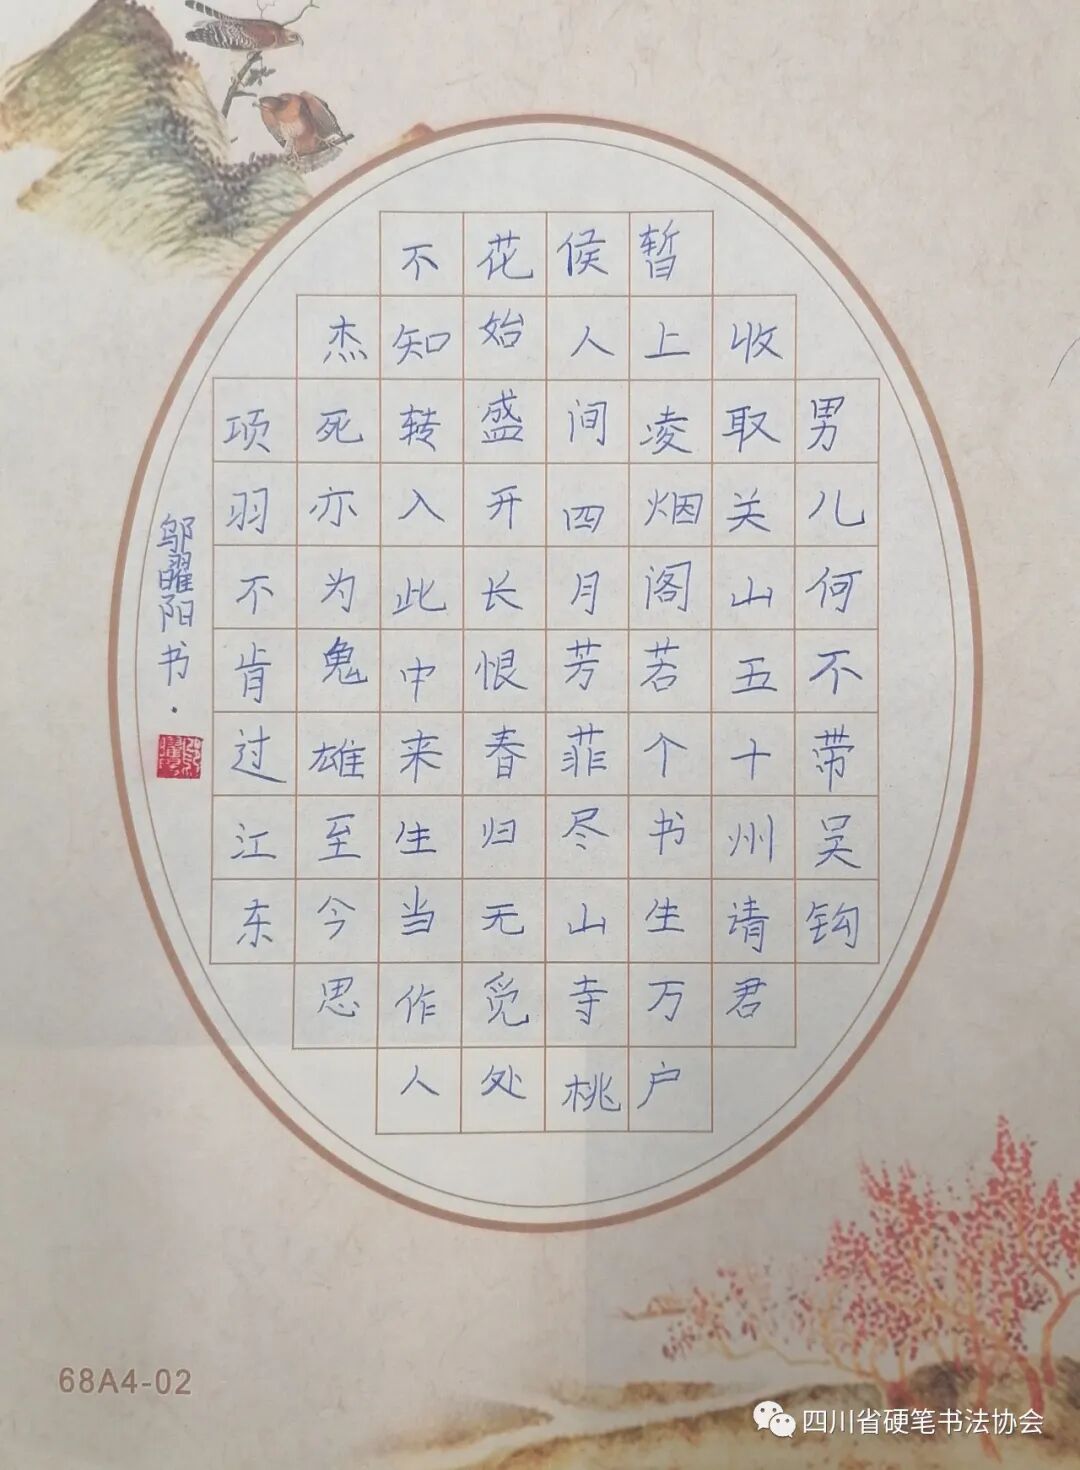 男儿何不带吴钩
收取关山五十州请君
暂上凌烟阁若个书生万户
侯人间四月芳菲尽山寺桃
花始盛开长恨春归无觅处
不知转入此中来生当作人
杰死亦为鬼雄至今思
项羽不肯过江东
邬曜阳书·
68A4-02
四川省硬笔书法协会